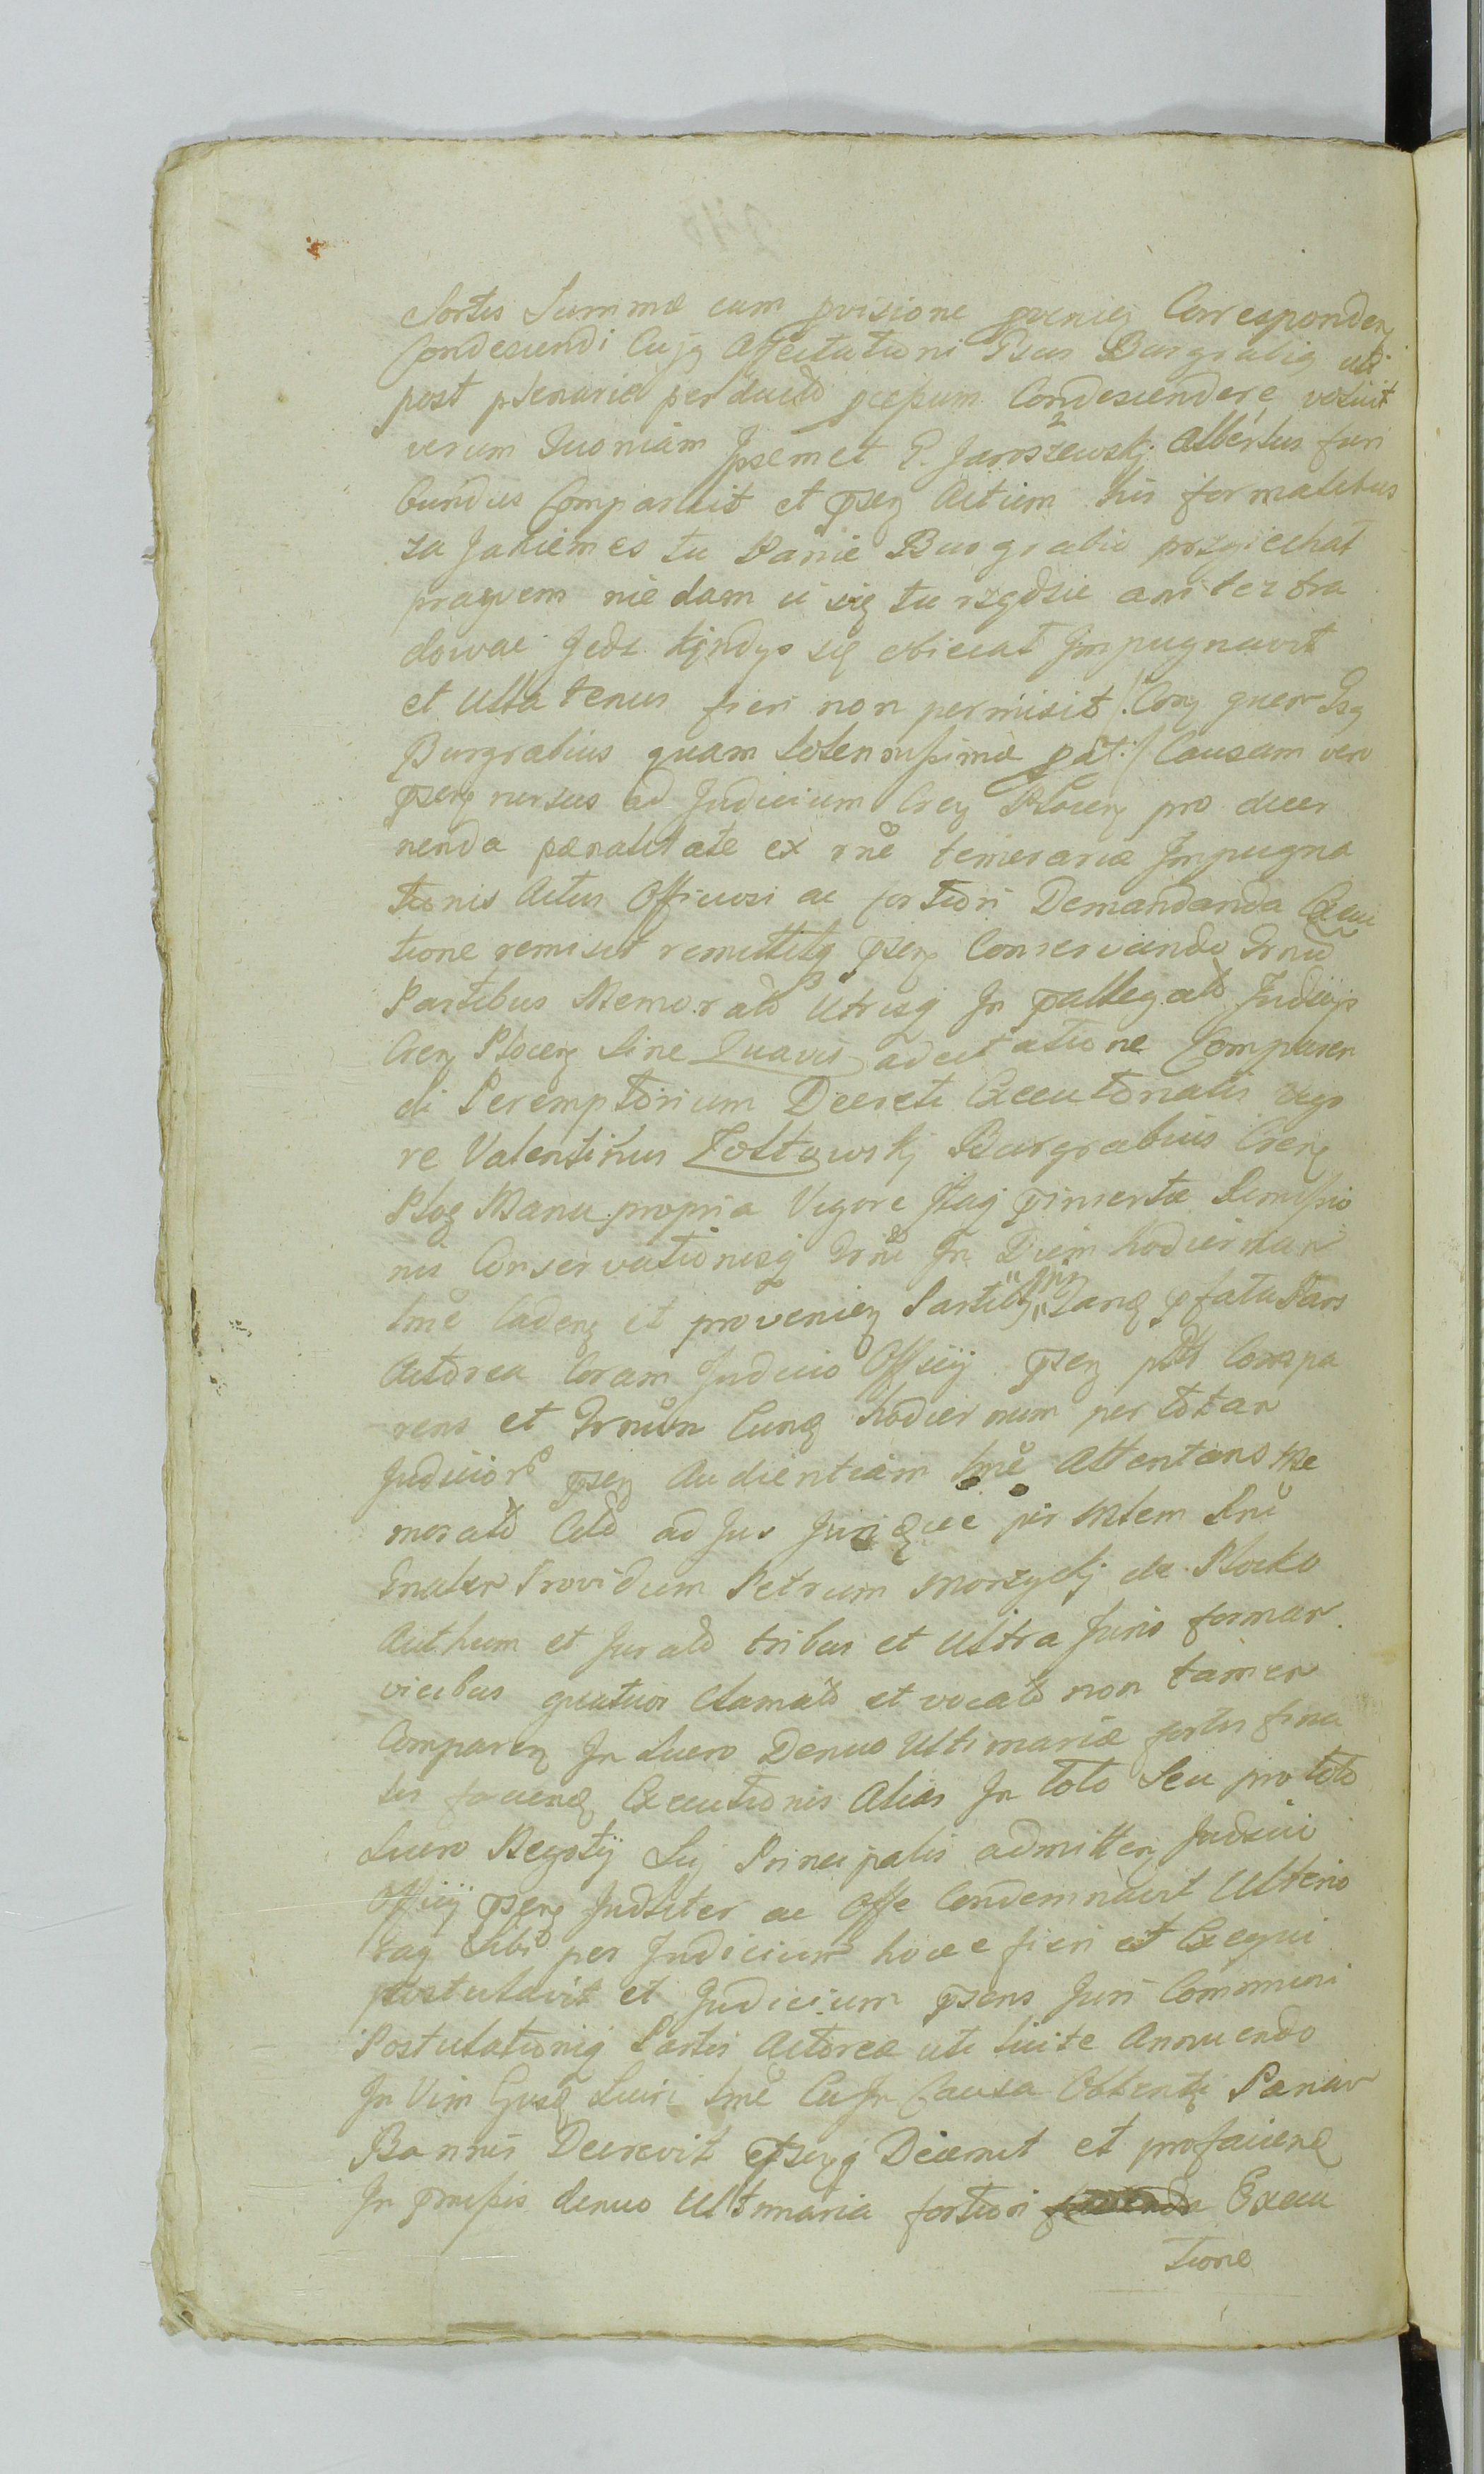 Sortis Summæ cum pvisione pvenien Corresponden
Condescendi Cujq Affectationi Psus Burgrabiq uti
post plenarie perductõ pcessum Condescendere voluit
verum Quoniam Ipsemet P. Jaroszewskj Albertus furi
bundus Comparuit et psen Actum his formalibus
za Jakiemes tu Panie Burgrabio przyiechał
prawem nie dam ci się tu rządzic ani tez tra
dowac Jedz kjndys się obiecał Impugnavit
et Ullatenus fieri non permisit /: Cora quem Isq
Burgrabius quam Solennissime ptt :/ Causam vero
psen rursus ad Judicium Cren Plocen pro decer
nenda pænalitate ex rnē temerariæ Impugna
tionis Actus Officiosi ac fortiori Demandanda Execu
tione remisit remittitq psen Conservando Trnū
Partibus Memoratõ Utrisq In pallegatõ Judicijs
Cren Plocen Sine Quavis adcitatione Comparen
di Peremptorium Decreti Executorialis vigo
re Valentinus Zołtowskj Burgrabius Cren
Ploc Manu propria Vigore Itaq pinsertæ Remissio
nis Conservationisq Trni In Diem hodiernam
lmē Caden et provenien Partibq Dane pfata Pars
Actorea Coram Judicio Officij psen ptt Compa
rens et Trnūm Cunq hodiernum per totam
Judicior psen Audientiam lmē Attentans Me
moratõ Citõ ad Jus per Mlem Rnī
Gnalem Providum Petrum Morzyckj de Plocko
Authum et Juratõ tribus et Ultra Juris formam
vicibus quatuor Clamatõ et vocatõ non tamen
Comparen In Lucro Denuo Ultimariæ fortis fina
lis faciend Executionis Alias In toto Seu pro toto
Lucro Regstij Sui Principalis admitten Judicii
Officij psen Judtiter ac Offe Condemnavit Ulterio
raq Sibi per Judicium hocce fieri et Exequi
postulavit et Judicium psens Juri Communi
Postulationiq Partis Actoreæ uti licite Annuendo
In Vim Gusd Lucri lmē Ca In Causa Obtenti Pænam
Bannis Decrevit psenq Decernit et profaciend
In pmissis denuo Ultimaria fortiori Execu
tione